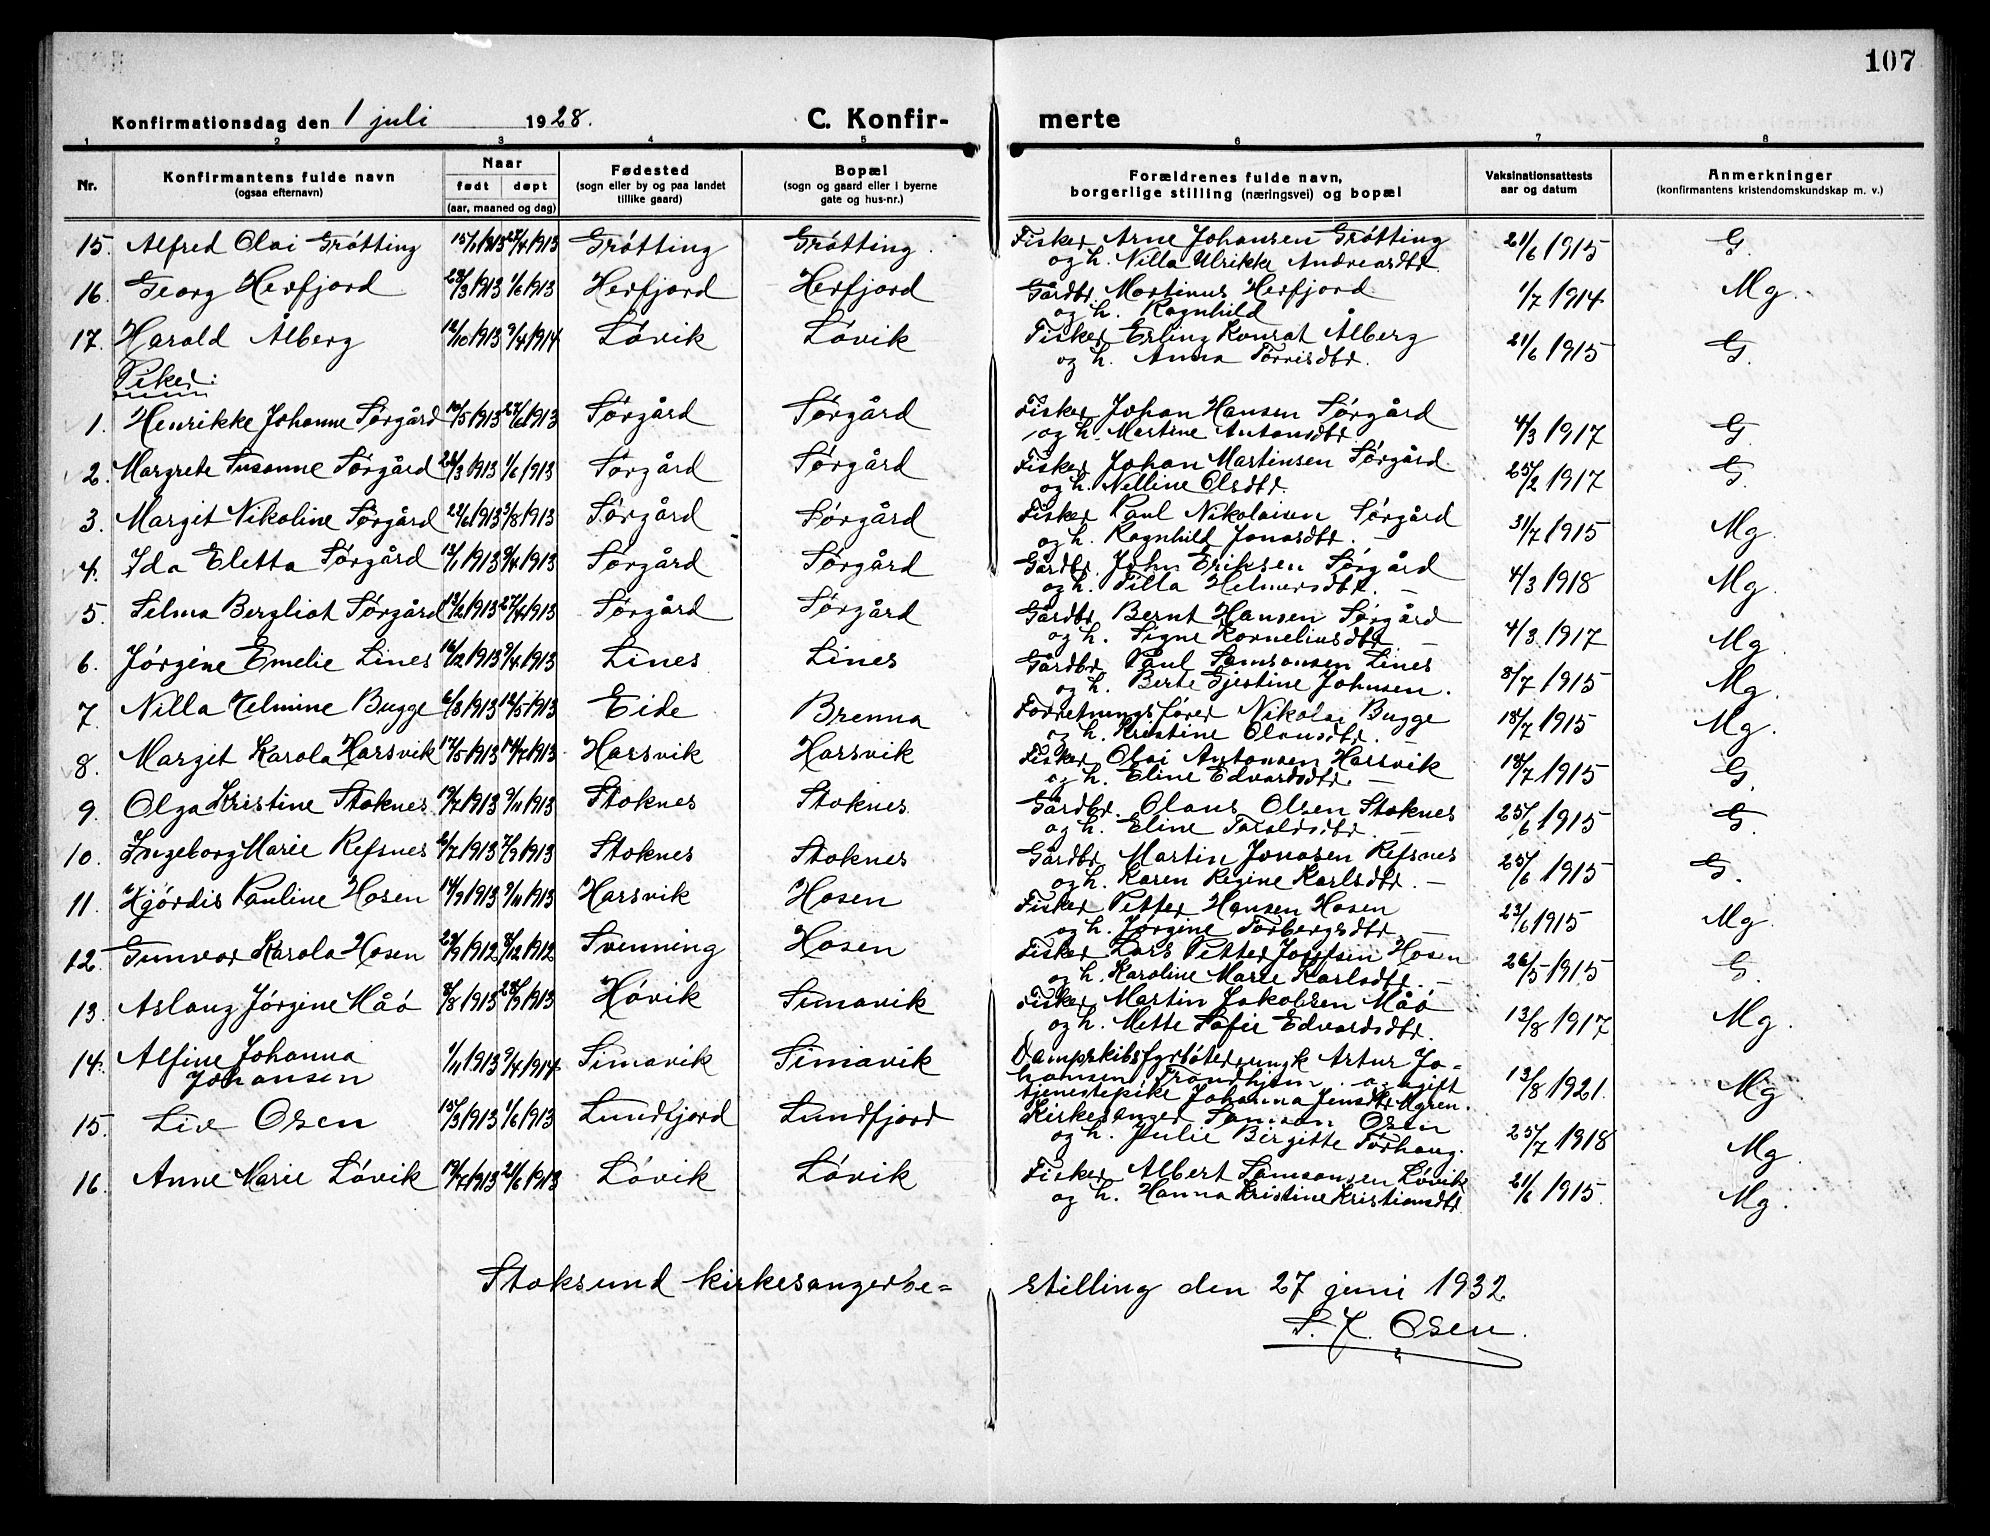 107
Konfirmationsdag den 1 juli 1928. C. Konfir- merte
1 2 3 4 5 6 7 8
Nr. Konfirmantens fulde navn (ogsaa efternavn) Naar født døpt (aar, maaned og dag) Fødested (sogn eller by og paa landet tillike gaard) Bopæl (sogn og gaard eller i byerne gate og hus-nr.) Forældrenes fulde navn, borgerlige stilling (næringsvei) og bopæl Vaksinationsattests aar og datum Anmerkninger (konfirmantens kristendomskundskap m. v.)
15. Alfred Olai Grótting Grótting Grótting. Fisker Arne Johansen Grótting 21/6 1915 G.
og h. Nilla Ulrikke Andreasdtr.
16. Georg Herfjord 23/3 1913 1/6 1913 Herfjord Herfjord Gårdbr. Martinus Herfjord 1/7 1914 Mg.
og h. Ragnhild
17. Harald Ålberg 12/10 1913 9/4 1914 Lóvik Lóvik Fisker Erling Konrat Ålberg 21/6 1915 G.
og h. Anna Torrisdtr.
Piker:
1. Henrikke Johanne Sórgård 10/5 1913 Sórgård Sórgård Fisker Johan Hansen Sórgård 4/3 1917 G.
og h. Martine Antonsdtr.
2. Margrete Susanne Sórgård 1/6 1913 Sórgård Sórgård Fisker Johan Martinsen Sórgård 25/2 1917 G.
og h. Nelline Olsdtr.
3. Margit Nikoline Sórgård 3/8 1913 Sórgård Sórgård Fisker Paul Nikolaisen Sórgård 31/7 1915 Mg.
og h. Ragnhild Jonasdtr. —
4. Ida Eletta Sórgård 13/1 1913 9/4 1913 Sórgård Sórgård Gårdbr. John Eriksen Sórgård 4/3 1918 Mg.
og h. Tilla Helmersdtr. —
5. Selma Bergliot Sórgård 13/2 1913 27/4 1913 Sórgård Sórgård Gårdbr Bernt Hansen Sórgård 4/3 1917 Mg.
og h. Signe Korneliusdtr —
6. Jórgine Emelie Lines 16/2 1913 9/4 1913 Lines Lines Gårdbr Paul Samsonsen Lines 8/7 1915 Mg.
og h. Berte Gjestine Johnsen.
7 Nilla Telmine Bugge 6/3 1913 Eide Brenna Forretningsfórer Nikolai Bugge 18/7 1915 Mg.
og h. Kristine Olausdtr.
8. Margit Karola Harsvik 17/5 1913 14/7 1913 Harsvik Harsvik Fisker Olai Antonsen Harsvik 18/7 1915 G.
og h. Eline Edvardsdtr —
9. Olga Kristine Stoknes 19/7 1913 9/11 1913 Stoknes Stoknes Gårdbr. Olaus Olsen Stoknes 25/6 1915 G.
og h. Eline Taraldsdtr. —
10. Ingeborg Marie Refsnes 7/9 1913 Stoknes Stoknes Gårdbr Martin Jonasen Refsnes 25/6 1915 G.
og h. Karen Regine Karlsdtr. —
11. Hjórdis Pauline Hosen 14/9 1913 9/11 1913 Harsvik Hosen Fisker Petter Hansen Hosen 23/6 1915 Mg.
og h. Jórgine Torbergsdtr —
12. Gunvor Karola Hosen 29/9 1912 8/12 1912 Svenning Hosen Fisker Lars Petter Josefsen Hosen 26/5 1915 G.
og h. Karoline Marie Karlsdtr. —
13. Aslaug Jórgine Måó 28/9 1913 Hóvik Simavik Fisker Martin Jakobsen Måó 13/8 1917 Mg.
og h. Mette Sofie Edvardsdtr.
14. Alfine Johanna 1/11 1913 9/4 1914 Simavik Simavik Dampskibsfyrbóter ungk Artur Jo-
Johansen hansen, Trondhjem og ugift 13/8 1921. Mg
tjenestepike Johanna Jensdtr Myren.
15. Liv Osen 15/3 1913 1/6 1913 Lundfjord Lundfjord Kirkesanger Samson Osen 25/7 1918 Mg.
og h. Julie Birgitte Tórhaug.
16. Anne Marie Lóvik 19/7 1913 21/6 1913 Lóvik Lóvik Fisker Albert Samsonsen Lóvik 21/6 1915. Mg.
og h. Hanna Kristine Kristiansdtr.
Stoksund kirkesangerbe= stilling den 27 juni 1932
S. J. Osen.